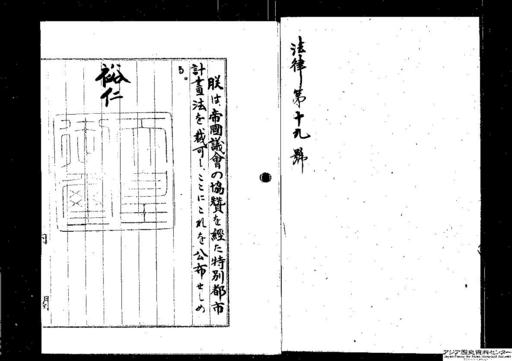 法律第十九號
朕は帝國議會の協贊を經た特別都市
計畫法を裁可し、ここにこれを公布せしめ
る。
裕仁
天皇
御璽
アジア歴史資料センター